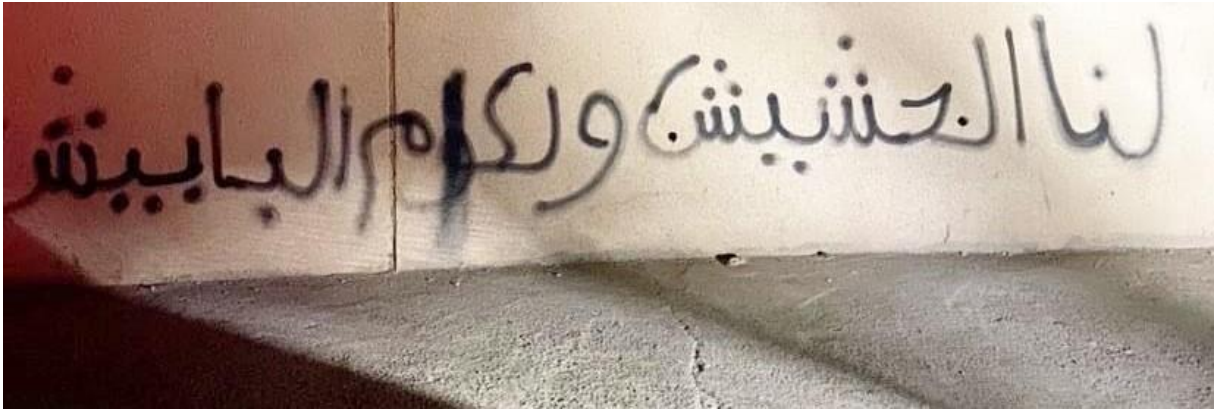 لنا الحشيش ولكم البابيش